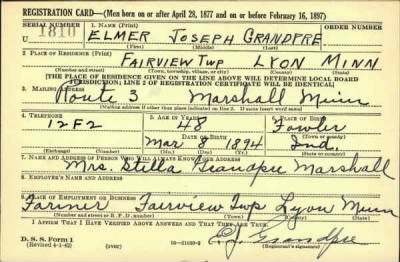 REGISTRATION CARD—(Men born on or after April 28, 1877 and on or before February 16, 1897)
SERIAL NUMBER 1. NAME (Print) ORDER NUMBER
1810 ELMER JOSEPH GRANDPRE
(First) (Middle) (Last)
2. PLACE OF RESIDENCE (Print)
FAIRVIEW TWP LYON MINN
(Number and street) (Town, township, village, or city) (County) (State)
[THE PLACE OF RESIDENCE GIVEN ON THE LINE ABOVE WILL DETERMINE LOCAL BOARD
JURISDICTION; LINE 2 OF REGISTRATION CERTIFICATE WILL BE IDENTICAL]
3. MAILING ADDRESS
Route 3 Marshall Minn
[Mailing address if other than place indicated on line 2. If same insert word same]
4. TELEPHONE 5. AGE IN YEARS 6. PLACE OF BIRTH
12F2 48 Fowler
DATE OF BIRTH (Town or county)
Mar 8 1894 Ind.
(Exchange) (Number) (Mo.) (Day) (Yr.) (State or country)
7. NAME AND ADDRESS OF PERSON WHO WILL ALWAYS KNOW YOUR ADDRESS
Mrs. Stella Grandpre Marshall
8. EMPLOYER'S NAME AND ADDRESS
9. PLACE OF EMPLOYMENT OR BUSINESS
Farmer Fairview Twp Lyon Minn
(Number and street or R. F. D. number) (Town) (County) (State)
I AFFIRM THAT I HAVE VERIFIED ABOVE ANSWERS AND THAT THEY ARE TRUE.
D. S. S. Form 1 E. J. Grandpre
(Revised 4-1-42) (over) (Registrant's signature)